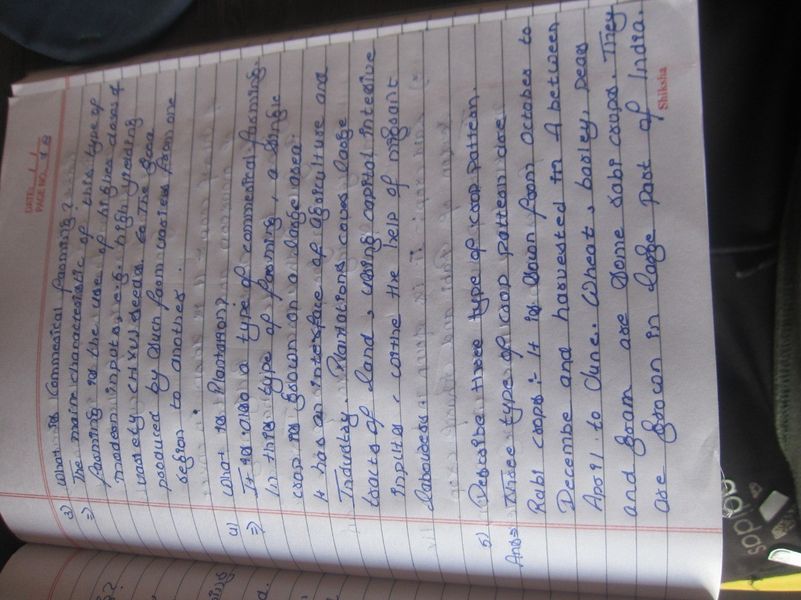 DATE: / /
PAGE NO.:
3) What is Commerical farming?
⇒ The main characteristic of this type of
farming is the use of higher doses of
modern inputs, e.g. high yielding
variety (HYV) seeds. So The
produced by farm varies from one
region to another.
4) What is Plantaion?
⇒ It is also a type of commerical farming.
In this type of farming, a single
crop is grown on a large area.
It has an interface of agriculture and
Industry. Plantations cover large
tracts of land, using capital intesive
inputs, withe the help of migrant
labourers.
5) Describe three type of crop pattern.
Ans⇒ Three type of crop pattern are
Rabi crops :- It is sown from October to
Decembe and harvested in between
April to June. Wheat, barley, peas
and gram are some rabi crops. They
are grown in large part of India.
Shiksha